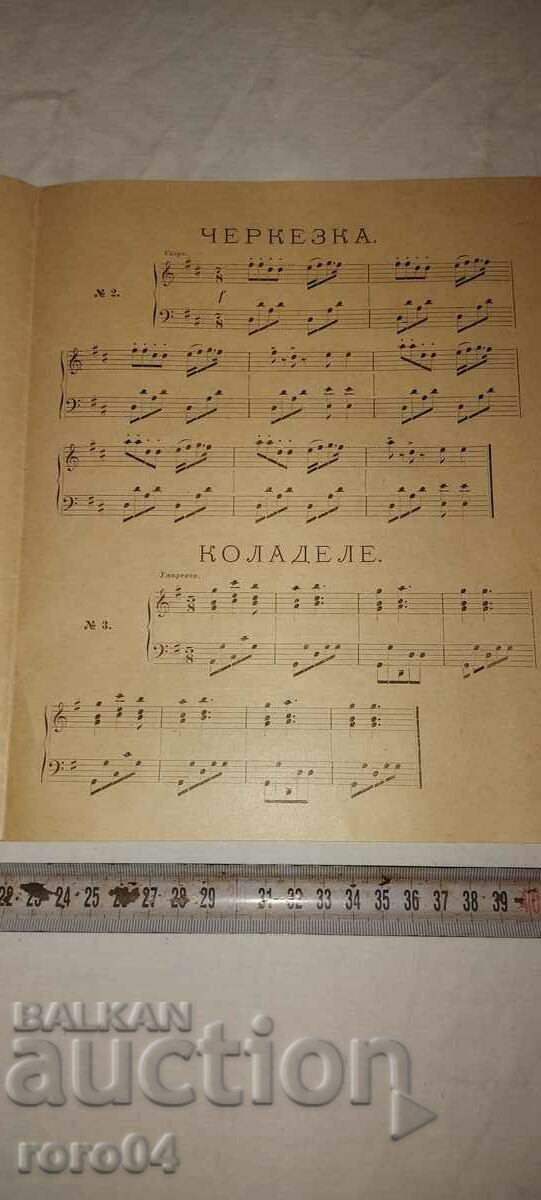 ЧЕРКЕЗКА.
Скоро.
№ 2.
7 8
f
7 8
КОЛАДЕЛЕ.
Умѣрено.
№ 3.
5 8
5 8
22 23 24 25 26 27 28 29 31 32 33 34 35 36 37 38 39 40
BALKAN
auction
roro04